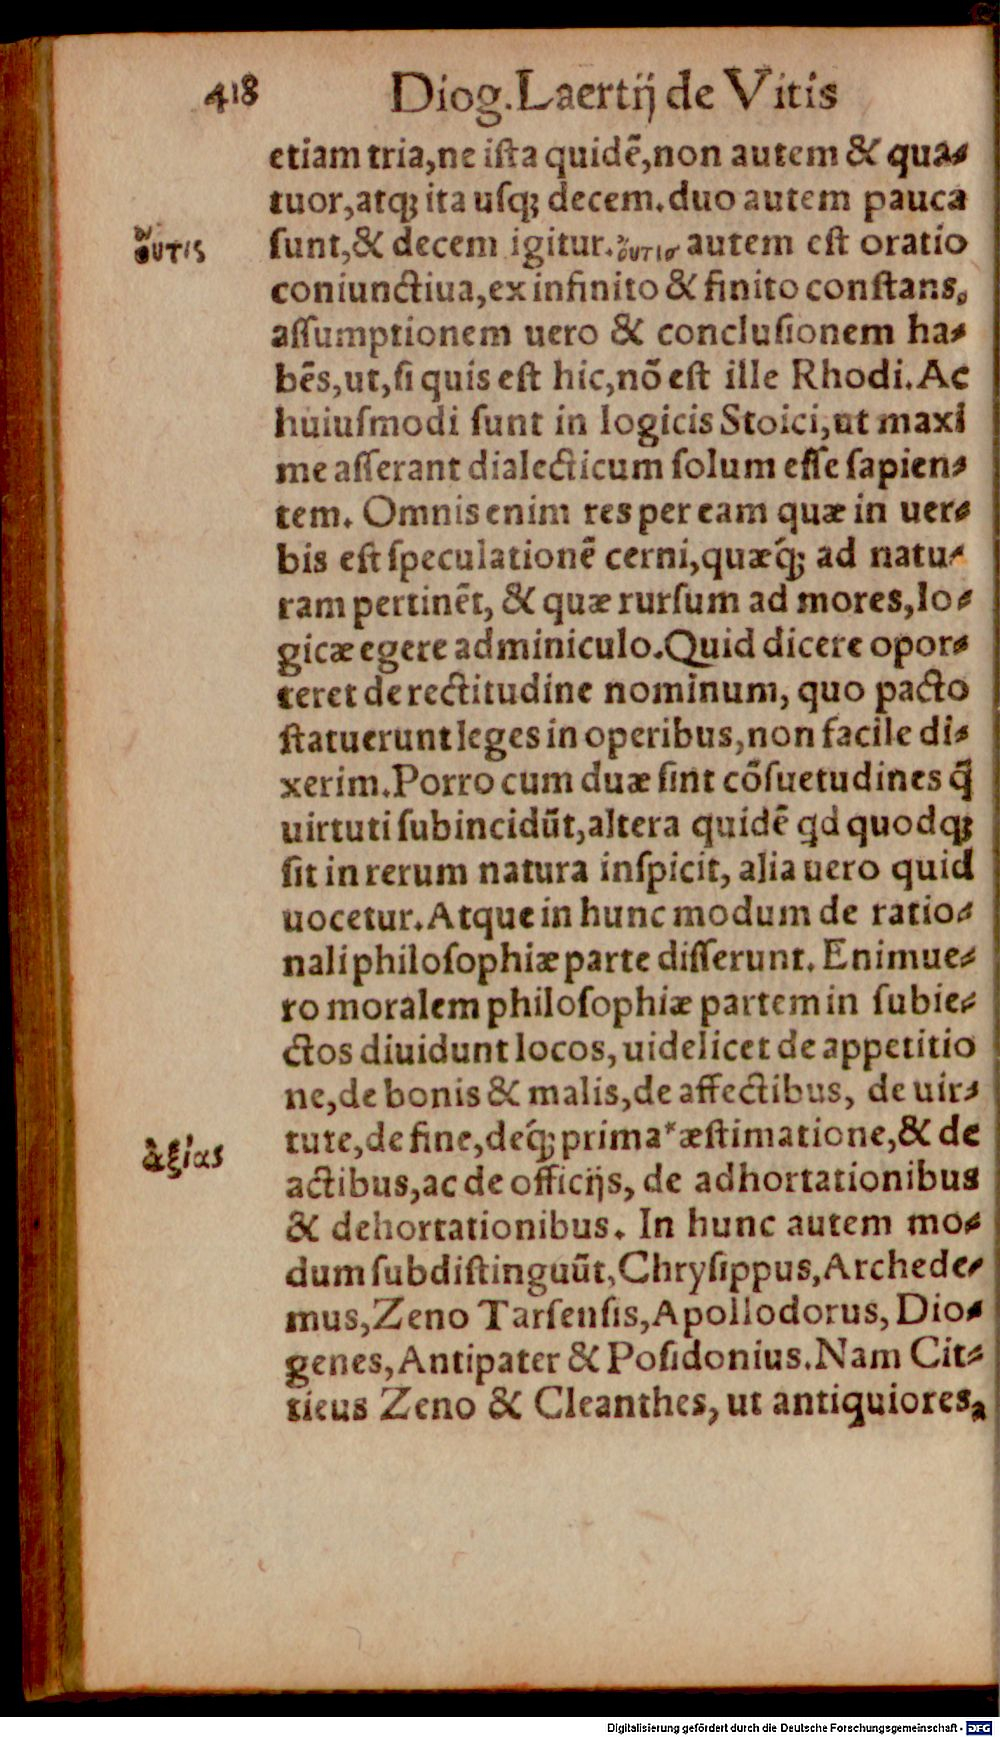 418 Diog.Laertij de Vitis
etiam tria,ne iſta quidẽ,non autem & qua⸗
tuor,atq; ita uſq; decem.duo autem pauca
οὖτις
ſunt,& decem igitur.οὖτισ autem eſt oratio
coniunctiua,ex infinito & finito conſtans,
aſſumptionem uero & concluſionem ha⸗
bẽs,ut,ſi quis eſt hic,nõ eſt ille Rhodi.Ac
huiuſmodi ſunt in logicis Stoici,ut maxi
me aſſerant dialecticum ſolum eſſe ſapien⸗
tem. Omnis enim res per eam quæ in uer⸗
bis eſt ſpeculationẽ cerni,quæq́; ad natu⸗
ram pertinẽt, & quæ rurſum ad mores,lo⸗
gicæ egere adminiculo.Quid dicere opor⸗
teret de rectitudine nominum, quo pacto
ſtatuerunt leges in operibus,non facile di⸗
xerim.Porro cum duæ ſint cõſuetudines q̃
uirtuti ſubincidũt,altera quidẽ qd quodq;
ſit in rerum natura inſpicit, alia uero quid
uocetur.Atque in hunc modum de ratio⸗
nali philoſophiæ parte diſſerunt. Enimue⸗
ro moralem philoſophiæ partem in ſubie⸗
ctos diuidunt locos, uidelicet de appetitio
ne,de bonis & malis,de affectibus, de uir⸗
ἀξίας
tute,de fine,deq́; prima*æſtimatione,& de
actibus,ac de officijs, de adhortationibus
& dehortationibus. In hunc autem mo⸗
dum ſubdiſtinguũt,Chryſippus,Archede⸗
mus,Zeno Tarſenſis,Apollodorus, Dio⸗
genes,Antipater & Poſidonius.Nam Cit⸗
tieus Zeno & Cleanthes, ut antiquiores,
Digitalisierung gefördert durch die Deutsche Forschungsgemeinschaft - DFG